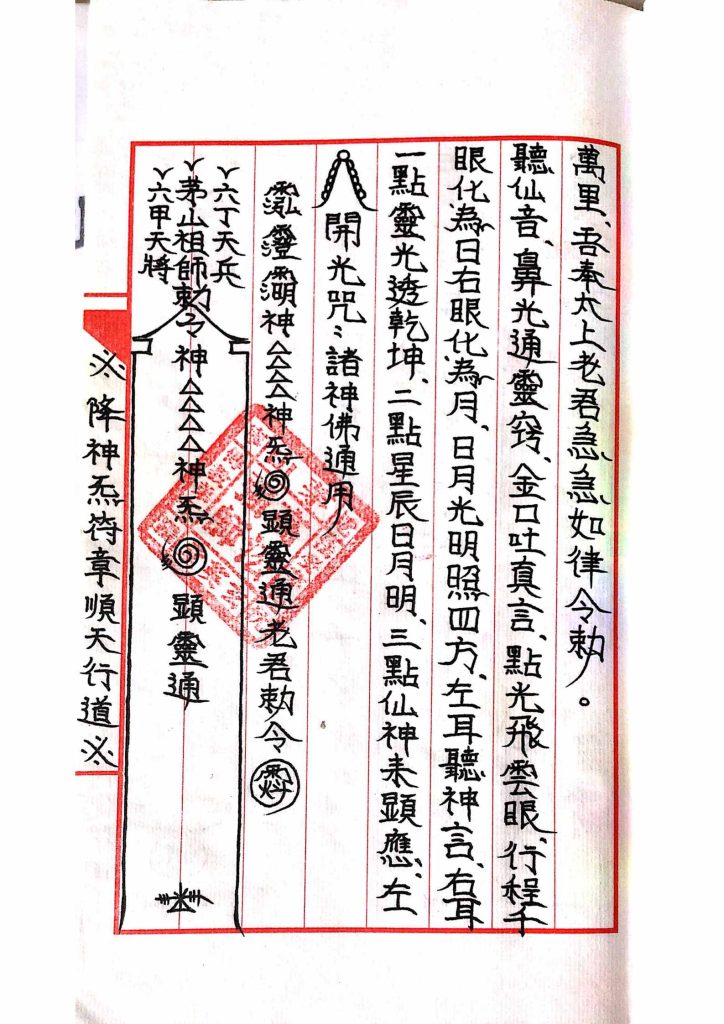 ※降神炁符章順天行道※
六甲天將
茅山祖師勅令神△△△△神炁 顯靈通
六丁天兵
神△△△△神炁 顯靈通老君勅令
開光咒：諸神佛通用
一點靈光透乾坤、二點星辰日月明、三點仙神来顯應、左
眼化為日右眼化為月、日月光明照四方、左耳聽神言、右耳
聽仙音、鼻光通靈竅、金口吐真言、點光飛雲眼、行程千
萬里、吾奉太上老君急急如律令勅。